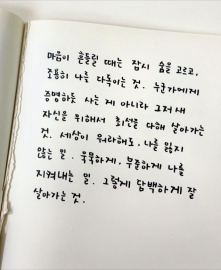 마음이 흔들릴 때는 잠시 숨을 고르고,
조용히 나를 다독이는 것. 누군가에게
증명하듯 사는 게 아니라 그저 내
자신을 위해서 최선을 다해 살아가는
것. 세상이 뭐라해도, 나를 잃지
않는 일. 묵묵하게, 부준하게 나를
지켜내는 일. 그렇게 담백하게 잘
살아가는 것.